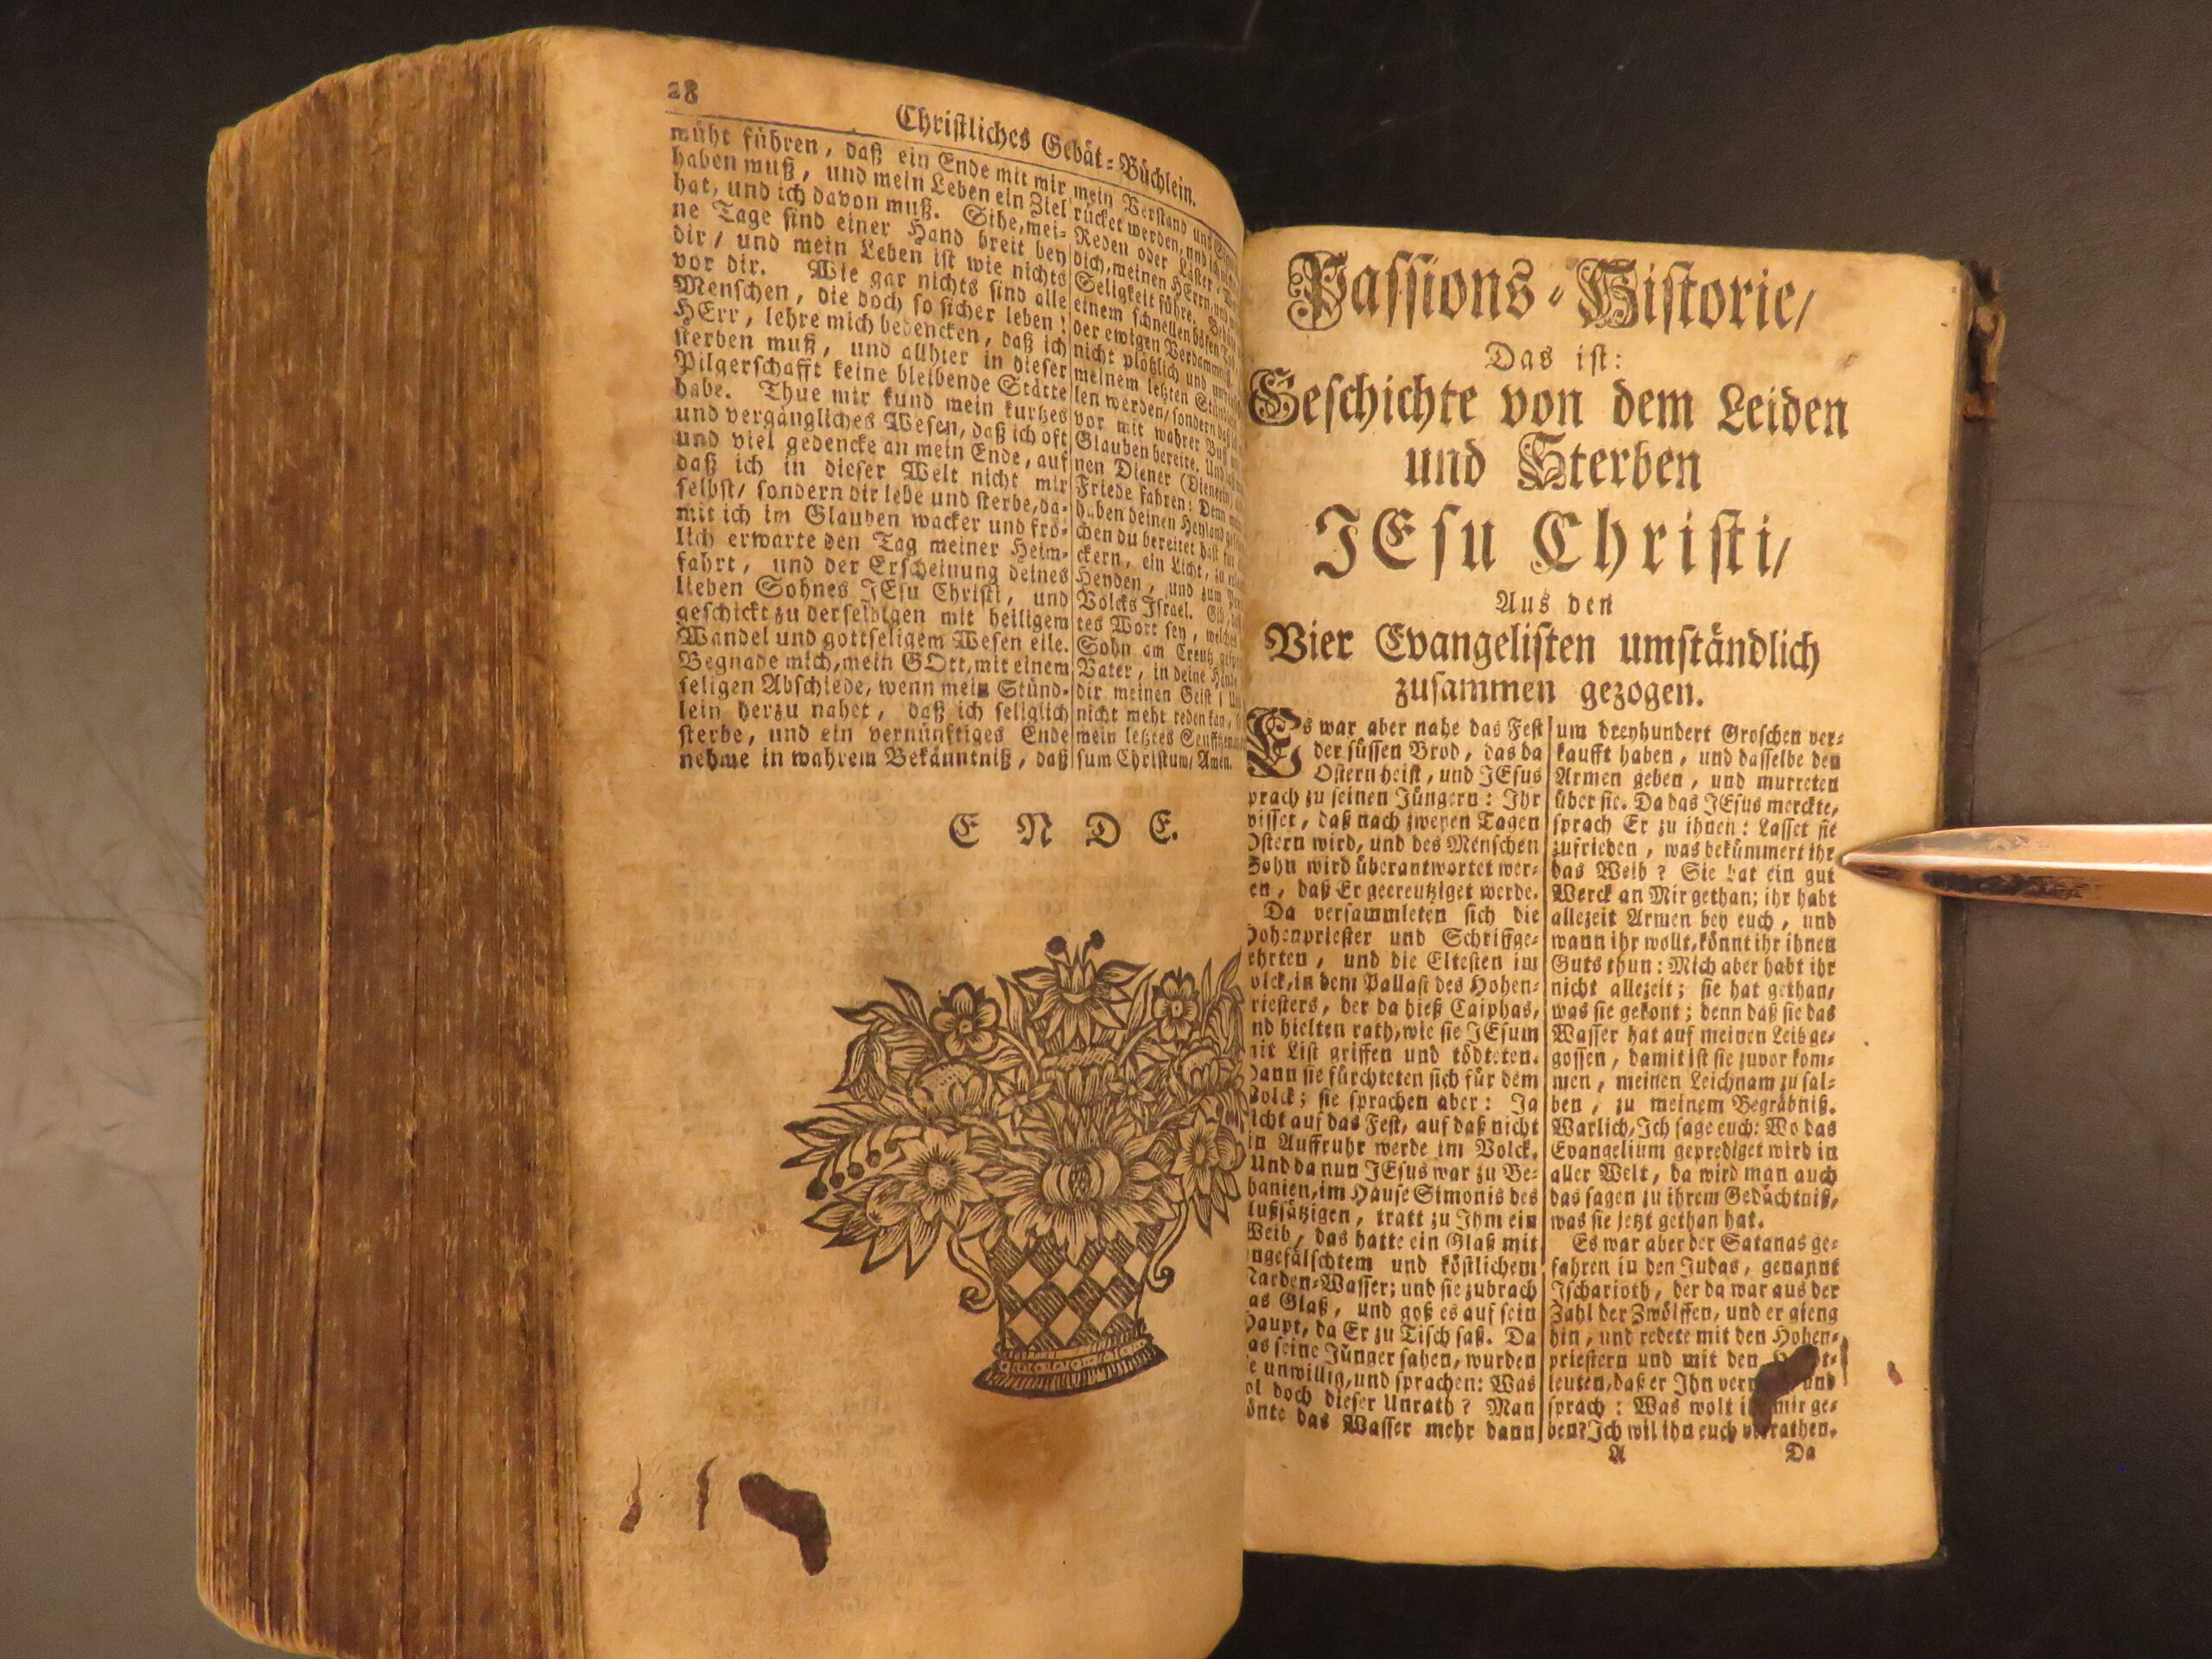 28
Christliches Gebät-Büchlein.
müht führen, daß ein Ende mit mir
haben muß, und mein Leben ein Ziel
hat, und ich davon muß. Sihe, mei-
ne Tage sind einer Hand breit bey
dir / und mein Leben ist wie nichts
vor dir. Wie gar nichts sind alle
Menschen, die doch so sicher leben!
HErr, lehre mich bedencken, daß ich
sterben muß, und allhier in dieser
Pilgerschafft keine bleibende Stätte
habe. Thue mir kund mein kurtzes
und vergängliches Wesen, daß ich oft
und viel gedencke an mein Ende, auf
daß ich in dieser Welt nicht mir
selbst/ sondern dir lebe und sterbe, da-
mit ich im Glauben wacker und frö-
lich erwarte den Tag meiner Heim-
fahrt, und der Erscheinung deines
lieben Sohnes JEsu Christi, und
geschickt zu derselbigen mit heiligem
Wandel und gottseligem Wesen eile.
Begnade mich, mein GOtt, mit einem
seligen Abschiede, wenn mein Stünd-
lein herzu nahet, daß ich seliglich
sterbe, und ein vernünftiges Ende
nehme in wahrem Bekänntniß, daß
mein Verstand und
rücket werden, und
Reden oder Läster-
dich, meinen HErrn, und
Seligkeit führe.
einem schnellen bösen Tod,
der ewigen Verdammniß.
nicht plötzlich und
meinem letzten
len werden/ sondern daß
vor mit wahrer Buß
Glauben bereite. Und
nen Diener (Dienerin)
Friede fahren: Denn
haben deinen Heyland
chen du bereitet hast für
ckern, ein Licht, zu
Heyden, und zum
Volcks Israel.
tes Wort sey, welches
Sohn am Creutz
Vater, in deine Hände
dir meinen Geist!
nicht meht reden kan,
mein letztes
sum Christum/ Amen.
E N D E.
Passions-Historie/
Das ist:
Geschichte von dem Leiden
und Sterben
JEsu Christi/
Aus den
Vier Evangelisten umständlich
zusammen gezogen.
Es war aber nahe das Fest
der süssen Brod, das da
Ostern heist, und JEsus
sprach zu seinen Jüngern: Ihr
wisset, daß nach zweyen Tagen
Ostern wird, und des Menschen
Sohn wird überantwortet wer-
en, daß Er gecreutziget werde.
Da versammleten sich die
Hohenpriester und Schriftge-
ehrten, und die Eltesten im
olck, in dem Pallast des Hohen-
riesters, der da hieß Caiphas,
nd hielten rath, wie sie JEsum
mit List griffen und tödteten.
Dann sie fürchteten sich für dem
Volck; sie sprachen aber: Ja
icht auf das Fest, auf daß nicht
in Auffruhr werde im Volck.
Und da nun JEsus war zu Be-
hanien, im Hause Simonis des
ußsätzigen, tratt zu Ihm ein
Weib, das hatte ein Glaß mit
ngefälschtem und köstlichem
Narden-Wasser; und sie zubrach
as Glaß, und goß es auf sein
Haupt, da Er zu Tisch saß. Da
as seine Jünger sahen, wurden
e unwillig, und sprachen: Was
ol doch dieser Unrath? Man
önte das Wasser mehr dann
um dreyhundert Groschen ver-
kaufft haben, und dasselbe den
Armen geben, und murreten
über sie. Da das JEsus merckte,
sprach Er zu ihnen: Lasset sie
zufrieden, was bekümmert ihr
das Weib? Sie hat ein gut
Werck an Mir gethan; ihr habt
allezeit Armen bey euch, und
wann ihr wollt, könnt ihr ihnen
Guts thun: Mich aber habt ihr
nicht allezeit; sie hat gethan/
was sie gekont; denn daß sie das
Wasser hat auf meinen Leib ge-
gossen, damit ist sie zuvor kom-
men, meinen Leichnam zu sal-
ben, zu meinem Begräbniß.
Warlich, Ich sage euch: Wo das
Evangelium geprediget wird in
aller Welt, da wird man auch
das sagen zu ihrem Gedächtniß,
was sie jetzt gethan hat.
Es war aber der Satanas ge-
fahren in den Judas, genannt
Ischarioth, der da war aus der
Zahl der Zwölffen, und er gieng
hin, und redete mit den Hohen-
priestern und mit den
leuten, daß er Ihn und
sprach: Was wolt mir ge-
ben? Ich wil ihn euch verrathen.
A Da